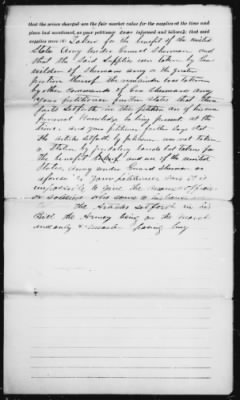 that the prices charged are the fair market value for the supplies at the time and
place last mentioned, as your petitioner is informed and believes; that said
supplies were Taken for the benefit of the united
States Army under General Sherman and
that the said Supplies was taken by the
soldiers of Shermans army or the greater
portion thereof the remainder was taken
by other commands of Gen Shermans army
your petitioner further states that these
facts setforth in the petition are of his own
personal knowledge he being present at the
time. and your petitioner further says that
the articles setforth by petitioner was not taken
or Stolen by bands but taken for
the benefit and use of the united
States, Army under General Sherman as
aforesaid your petitioner says it is
impossible to give the names officers
or soldiers who
the Articles setforth in his
Bill the Armey being on the march